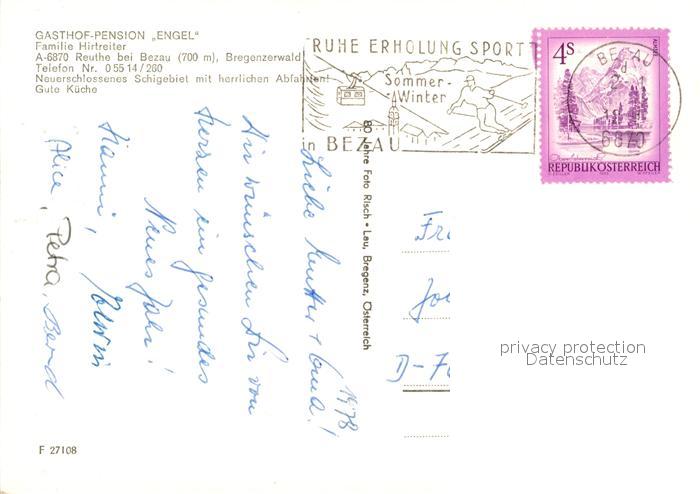 GASTHOF-PENSION „ENGEL“
Familie Hirtreiter
A-6870 Reuthe bei Bezau (700 m), Bregenzerwald
Telefon Nr. 0 55 14 / 260
Neuerschlossenes Schigebiet mit herrlichen Abfahrten!
Gute Küche
RUHE ERHOLUNG SPORT
Sommer-
-Winter
in BEZAU
BEZAU
6870
4S
ALMSEE
REPUBLIK ÖSTERREICH
80 Jahre Foto Risch • Lau, Bregenz, Österreich
1978
Liebe Mutter + Oma!
Wir wünschen Dir von
Herzen ein gesundes
Neues Jahr!
Hanni, Erwin
Alice, Petra, Bernd
Fr
Jo
D-F
privacy protection
Datenschutz
F 27108